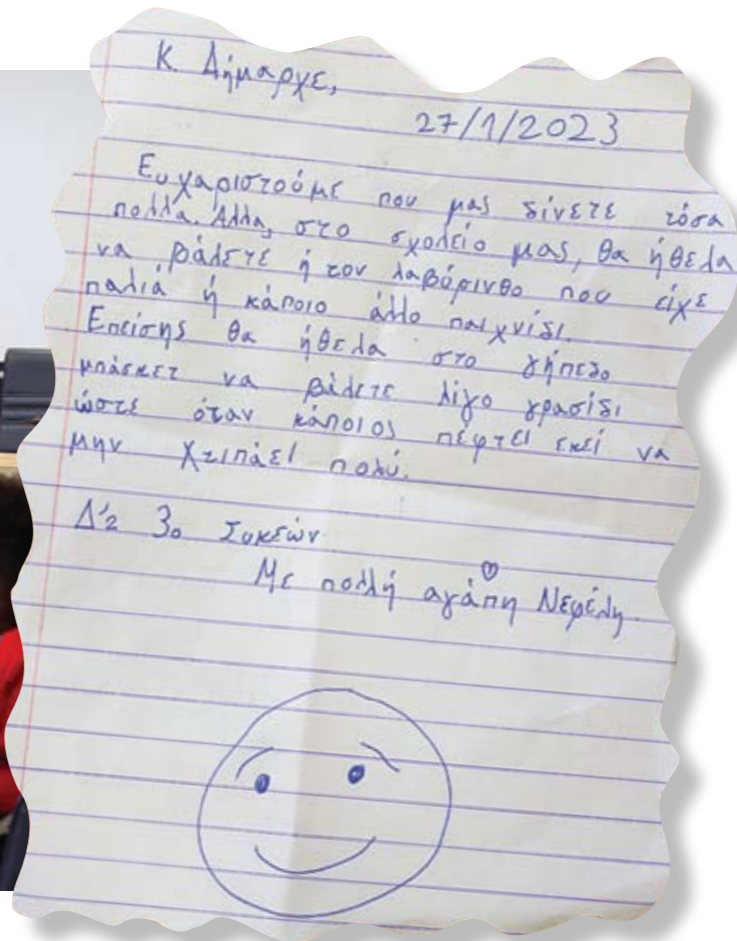 Κ. Δήμαρχε,
27/1/2023
Ευχαριστούμε που μας δίνετε τόσα
πολλά. Αλλά, στο σχολείο μας, θα ήθελα
να βάλετε ή τον λαβύρινθο που είχε
παλιά ή κάποιο άλλο παιχνίδι.
Επείσης θα ήθελα στο γήπεδο
μπάσκετ να βάλετε λίγο γρασίδι
ώστε όταν κάποιος πέφτει εκεί να
μην χτιπάει πολύ.
Δ'2 3ο Συκεών
Με πολλή αγάπη Νεφέλη.